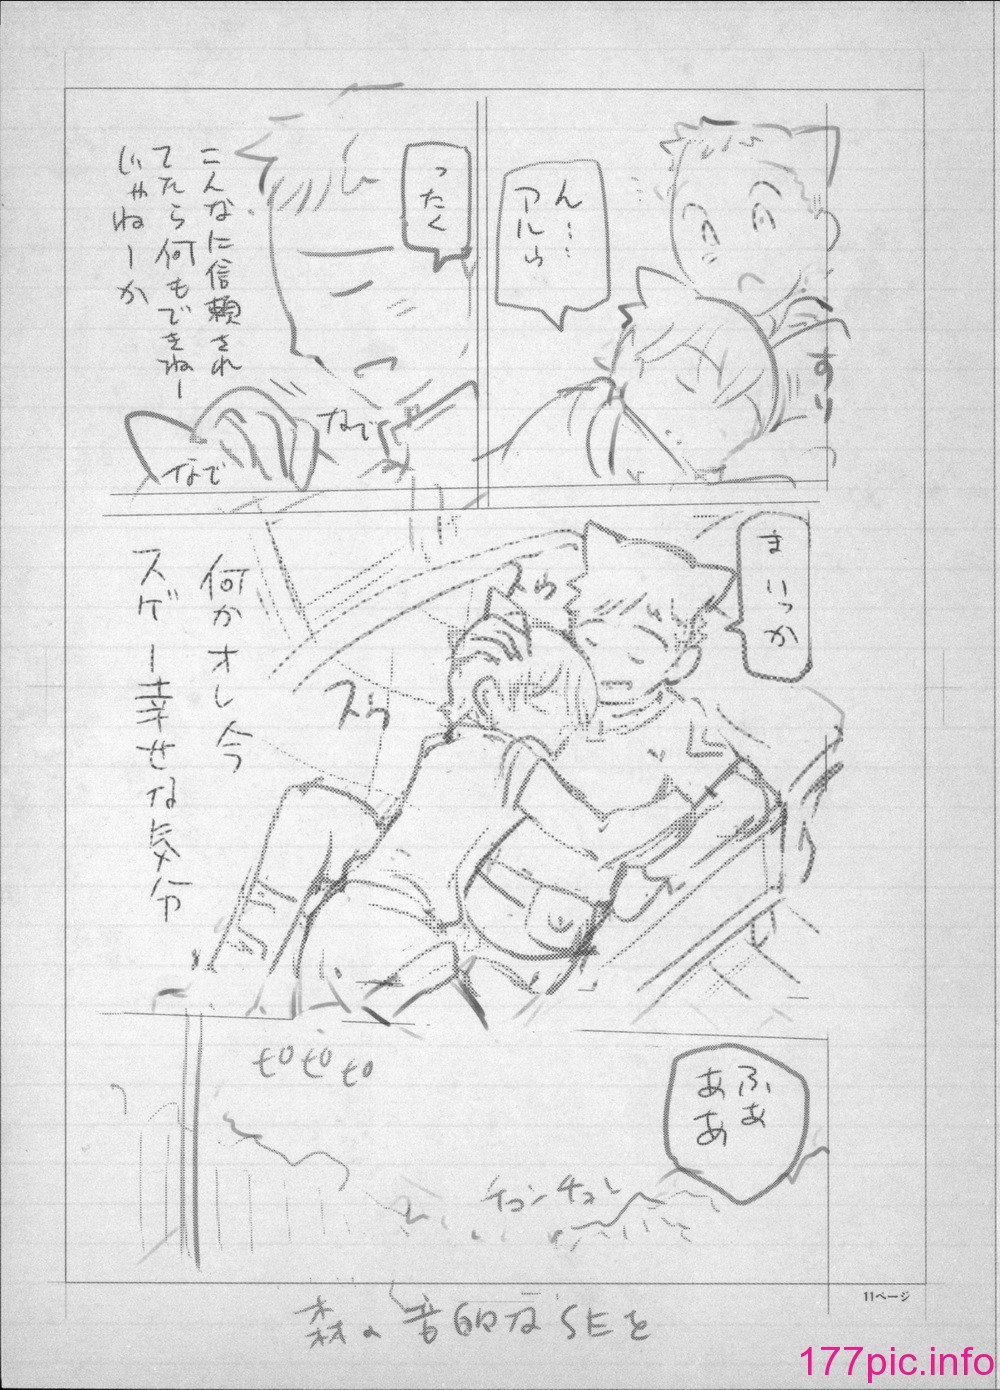 ん……
アルゥ
すり
ったく
こんなに信頼され
てたら何もできねー
じゃねーか
なで
なで
まいっか
スゥ
スゥ
何かオレ今
スゲー幸せな気分
ふぁ
ああ
ピピピ
チュンチュン
森の音的なSEを
11ページ
177pic.info